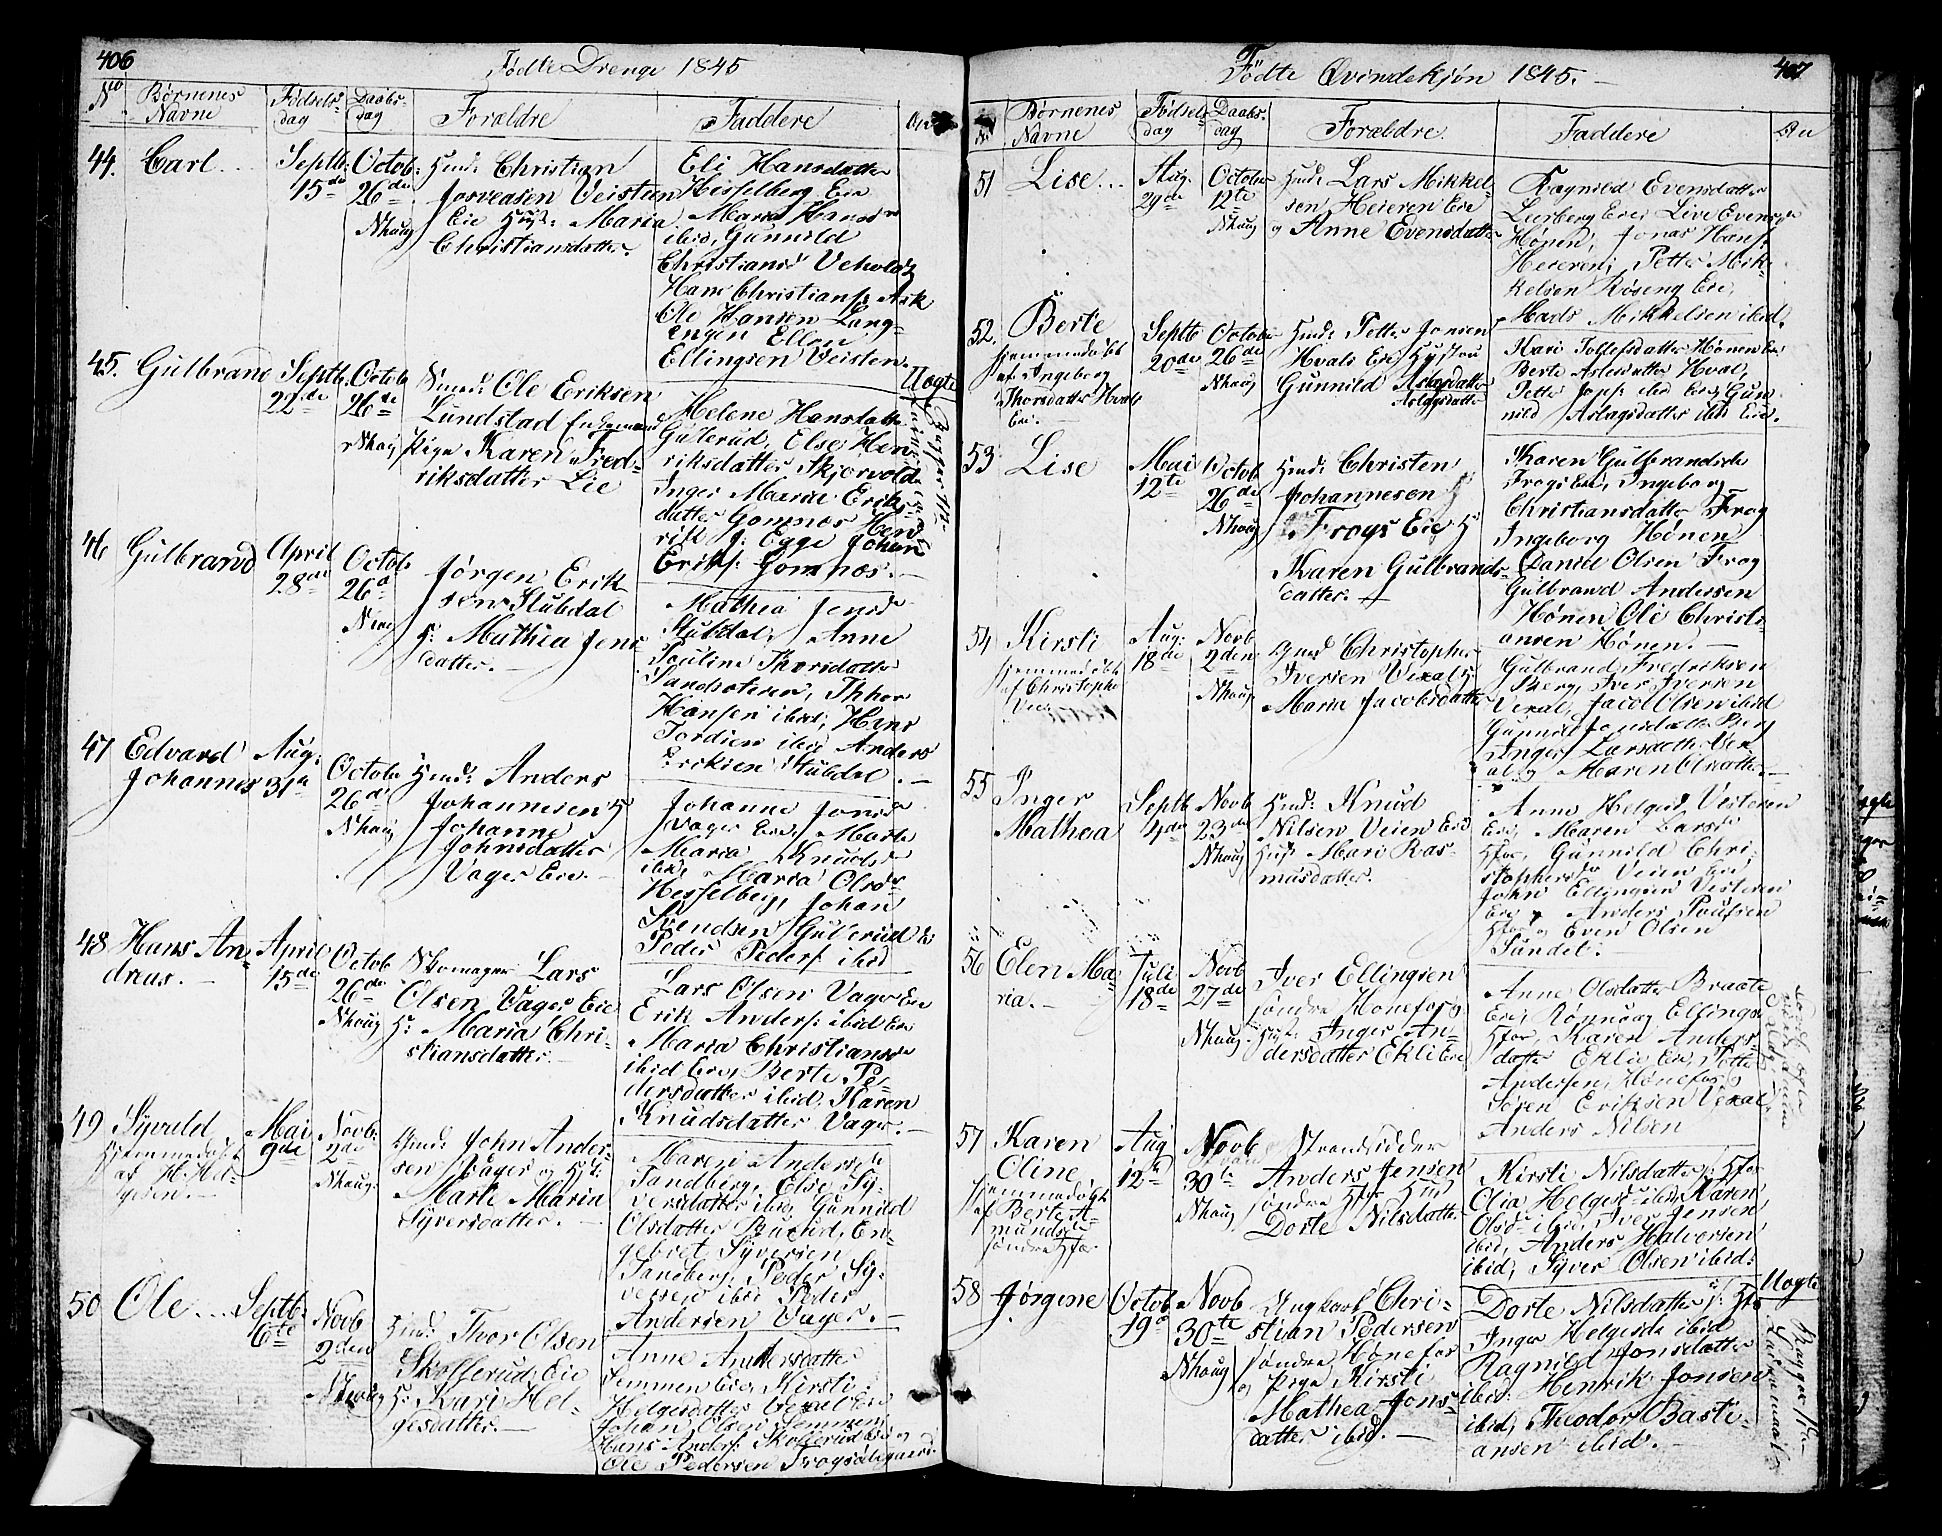 406
Födte Drenge 1845
No Børnenes Navne Fødsels-dag Daabs-dag Forældre Faddere
44. Carl Septb: 15de Octob: 26de Nhaug
Huusm: Christian
Veistien
Eie Hust: Maria
Christiansdatter.
Eli Hansdatter
Hesselberg Eie
Maria Hansdr
ibid, Gunnild
Christiansd
Hans Christians: Ask
Ole Hansen Lang-
engen Ellen
Ellingsen Veisten.
45. Gulbrand Septb. 22de Octob 26de Nhaug
Smed: Ole Eriksen
Lundstad
Pige Karen Fred-
riksdatter Lie
Uægte
Helene Hansdatter
Guterud, Else Hen-
riksdatter Skjorvold
Inger Marie Eriks-
datter Gomnæs Hen-
rik J: Egge Johan
Eriks: Gomnæs.
46 Gulbrand April 28de Octob 26d
Jørgen Erik-
sen Stubdal
H: Mathea Jens
datter.
Mathea Jensdr
Stubdal, Anne
Pauline Thorsdatter
Hansen ibid, Hans
Tordsen ibid Anders
Eriksen Stubdal.
47 Edvard Johannes Aug: 31te Octob 26d Nhaug
Huusm: Anders
Johannesen H
Johanne
Johnsdatter
Vager Eie
Johanne Jonsdr
Vager Eie, Marte
Maria Knudsdr
ibid, Maria Olsdr
Hesselberg, Johan
Svendsen Guterud Ei
Peder Peders: ibid
48 Hans An-dreas. April 15de Octob 26de Nhaug
Skomager Lars
Olsen Vager Eie
H: Maria Chri-
stiansdatter
Lars Olsen Vager Eie
Erik Anders: ibid Eie
Maria Christiansdr
ibid Eie, Berte Pe-
dersdatter ibid, Karen
Knudsdatter Vager.
49 Syvald
hjemmedøbt
af H. Hel-
gesen.
Mai 9de Novb: 2de Nhaug.
Huusm: John Ander-
sen Vager og Hst:
Marte Maria
Syversdatter.
Maren Andersdr
Sandberg, Else Sy-
versdatter ibid, Gunnild
Olsdatter, En-
gebret Syversen
Sandberg, Peder Sy-
versen ibid Peder
Andersen Vager.
50 Ole Septb. 6te Novb 2den Nhaug
Huusm: Thor Olsen
Skollerud Eie
H: Kari Hel-
gesdatter.
Anne Andersdatter
Semmen Eie, Kirsti
Helgesdatter Vexal Eie
Johan Olsen Semmen
Hans Anders: Skollerud Eie og
Ole Pedersen Frogsøiegaard.
407
Födte Qvindekjön 1845.
No Børnenes Navne Fødsels-dag Daabs-dag Forældre Faddere An
51 Lise Aug: 29de Octobr 12te Nhaug
Huusm: Lars Mikkel-
sen Heieren Eie
og Anne Evensdatter
Ragnild Evensdatter
Lerberg Eie, Live Evensdr
Hønen, Jonas Hans:
Heieren, Petter Mik-
kelsen Røseng Eie,
Mads Mikkelsen ibid.
52. Berte
hjemmedøbt
af Ingeborg
Thorsdatter Hvals
Eie.
Septb 20de Octobr 26de Nhaug
Huusm: Petter Jonsen
Hvals Eie Hustru
Gunnild Aslagsdatter
Aslagsdatter
Kari Tollefsdatter Hønen Eie
Berte Aslesdatter Hval,
Petter Jons: ibid Eie, Gun-
nild Aslagsdatter ibid Eie.
53 Lise Mai 12te Octob 26de Nhaug
Huusm: Christen
Johannesen
Frogs Eie H
Karen Gulbrands-
datter.
Karen Gulbrandsdr
Frogs Eie, Ingeborg
Christiansdatter Frog
Ingeborg Hønen
Daniel Olsen Frog
Gulbrand Andersen
Hønen Ole Christi-
ansen Hønen.
54 Kirsti
hjemmedøbt
af Christopher
Aug: 18de Novb 2den Nhaug
Christopher
Iversen Vexal H
Maria Jacobsdatter
Gulbrand Fredriksen
Berg, Iver Iversen
Vexal, Jacob Olsen ibid
Gunnild Jonsdatter Berg
Inger Larsdatter Vex-
al og Maren Olsdatter.
55 Inger Mathea Septb 4de Novb 23de Nhaug
Huusm: Knud
Nilsen Veien Eie
Hust: Mari Ras-
musdatter.
Anne Helgesd Vesteren
Eie, Maren Larsdr
Hfos, Gunnild Chri-
stophersdr Veien Eie
John Ellingsen Vesteren
Eie, Anders Poulsen
Hfos og Even Olsen
Sundet.
56 Elen Ma-ria. Juli 18de Novb 27de Nhaug.
Iver Ellingsen
søndre Hønefos
Hust: Inger An-
dersdatter Ekli Eie
Anne Olsdatter Braate
Eie, Rønnaug Ellingsdr
Hfos, Karen Anders-
datter Eklie Eie, Petter
Andersen Hønefos
Søren Eriksen Vexal
Anders Nilsen
57 Karen Oline
hjemmedøbt
af Berte A-
mundsd
søndre Hfos
Aug 12te Novb 30te Nhaug
Strandsidder
Anders Jensen
søndre Hfos Hust
Dorte Nilsdatter
Kirsti Nilsdatter s: Hfos
Olia Helgesd ibid, Karen
Olsd ibid, Iver Jensen
ibid, Anders Halvorsen
ibid, Syver Olsen ibid:
58 Jørgene Octob. 19d Novb 30te Nhaug
Ungkarl Chri-
stian Pedersen
søndre Hønefos
og Pige Kirsti
Mathea Jons-
datter ibid.
Uægte
Dorte Nilsdatter s: Hfos
Inger Helgesdr ibid
Ragnild Jonsdatter
ibid Henrik Jonsen
ibid, Theodor Basti-
ansen ibid.